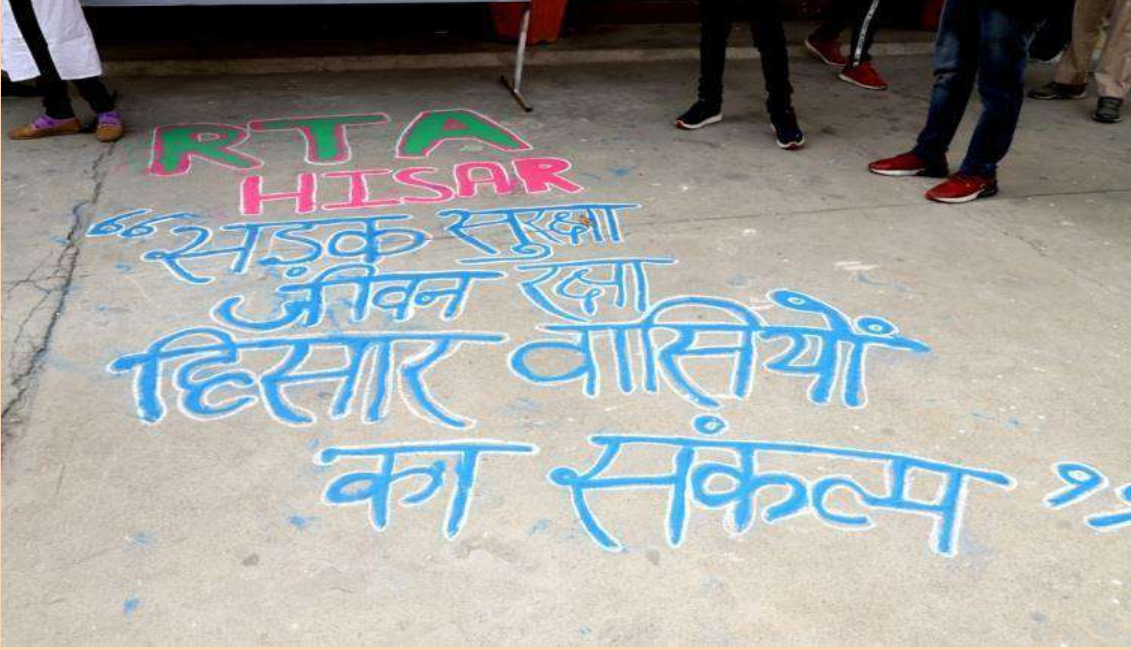 RTA
HISAR
“सड़क सुरक्षा
जीवन रक्षा
हिसार वासियों
का संकल्प”